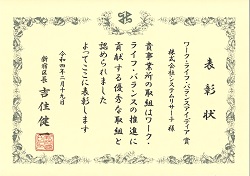 表彰状
ワーク・ライフ・バランスアイディア賞
株式会社システムリサーチ 様
貴事業所の取組はワーク・
ライフ・バランスの推進に
貢献する優秀な取組と
認められました
よってここに表彰します
令和四年二月十九日
新宿区長 吉住健一